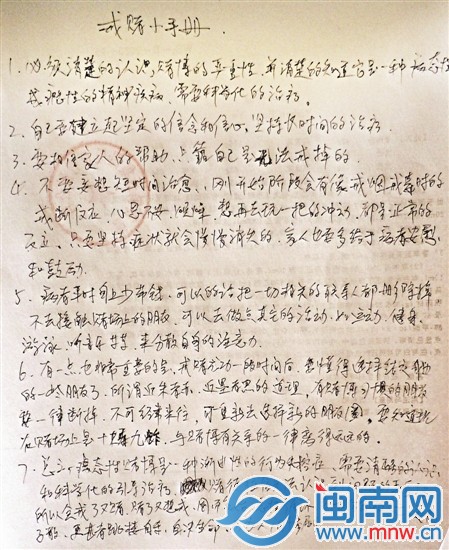 戒赌小手册.
1. 必须清楚的认识赌博的严重性,并清楚的知道它是一种病态性
的精神疾病,需要科学化的治疗。
2. 自己要建立起坚定的信念和信心,坚持长时间的治疗
3. 要相信家人的帮助,只靠自己是无法戒掉的.
4. 不要妄想短时间治愈、刚开始阶段会有像戒烟戒毒时的
戒断反应,心思不安,想再去玩一把的冲动,都是正常的
反应、只要坚持症状就会慢慢消失的,家人也要多给于病者安慰
和鼓励.
5. 病者平时身上少带钱,可以的话把一切相关的联系人都删除掉
不去接触赌场上的朋友,可以去做点其它的活动,如运动,健身,
游泳,听音乐等,来分散自身的注意力.
6. 有一点也非常重要的是,戒赌成功一段时间后,要懂得选择结交
的一些朋友了,所谓近朱者赤,近墨者黑的道理,有赌博习惯的朋友
要一律断掉,不可经常来往,可重新去选择新的朋友圈,要知道
在赌场上是十赌九诈,与赌博有关系的一律离得远远的.
7. 总之,病态性赌博是一种渐进性的行为失控症,需要清醒的认识
和科学化的引导治疗,
所以会戒了又赌,赌了又戒,
闽南网
www.mnw.cn